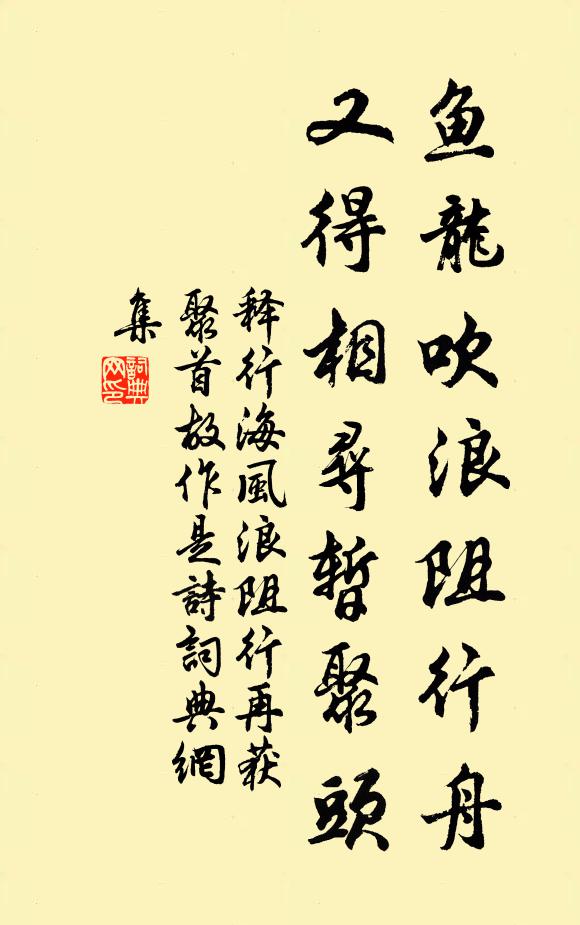 鱼龍吹浪阻行舟
又得相尋暫聚頭
释行海風浪阻行再获
聚首故作是詩詞典網
集
詞典
网印